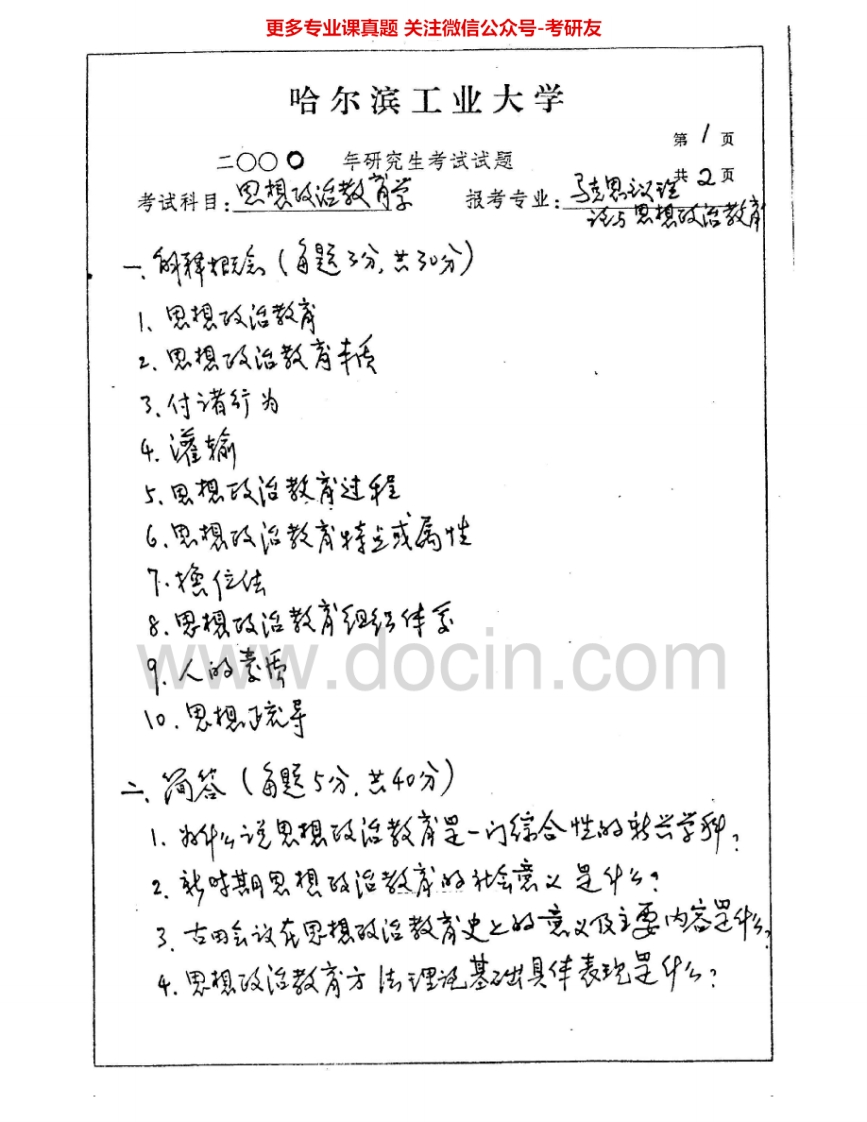 更多专业课真题 关注微信公众号-考研友
哈尔滨工业大学
第 1 页
二〇〇〇 年研究生考试试题
共 2 页
考试科目：思想政治教育学 报考专业：马克思主义理
论与思想政治教育
一、解释概念（每题3分，共30分）
1、思想政治教育
2、思想政治教育本质
3、付诸行为
4、灌输
5、思想政治教育过程
6、思想政治教育特点或属性
7、换位法
8、思想政治教育组织体系
9、人的素质
10、思想疏导
www.docin.com
二、简答（每题5分，共40分）
1、为什么说思想政治教育是一门综合性的新兴学科？
2、新时期思想政治教育的社会意义是什么？
3、古田会议在思想政治教育史上的意义及主要内容是什么？
4、思想政治教育方法理论基础具体表现是什么？